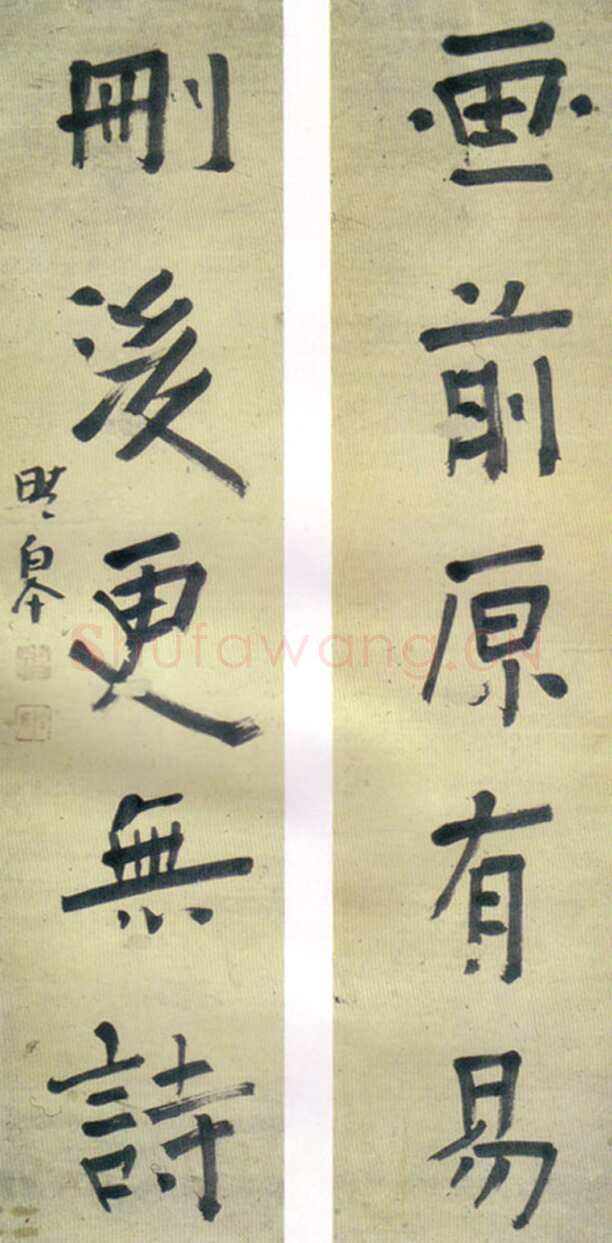 画前原有易
刪後更無詩
Shufawang.CN